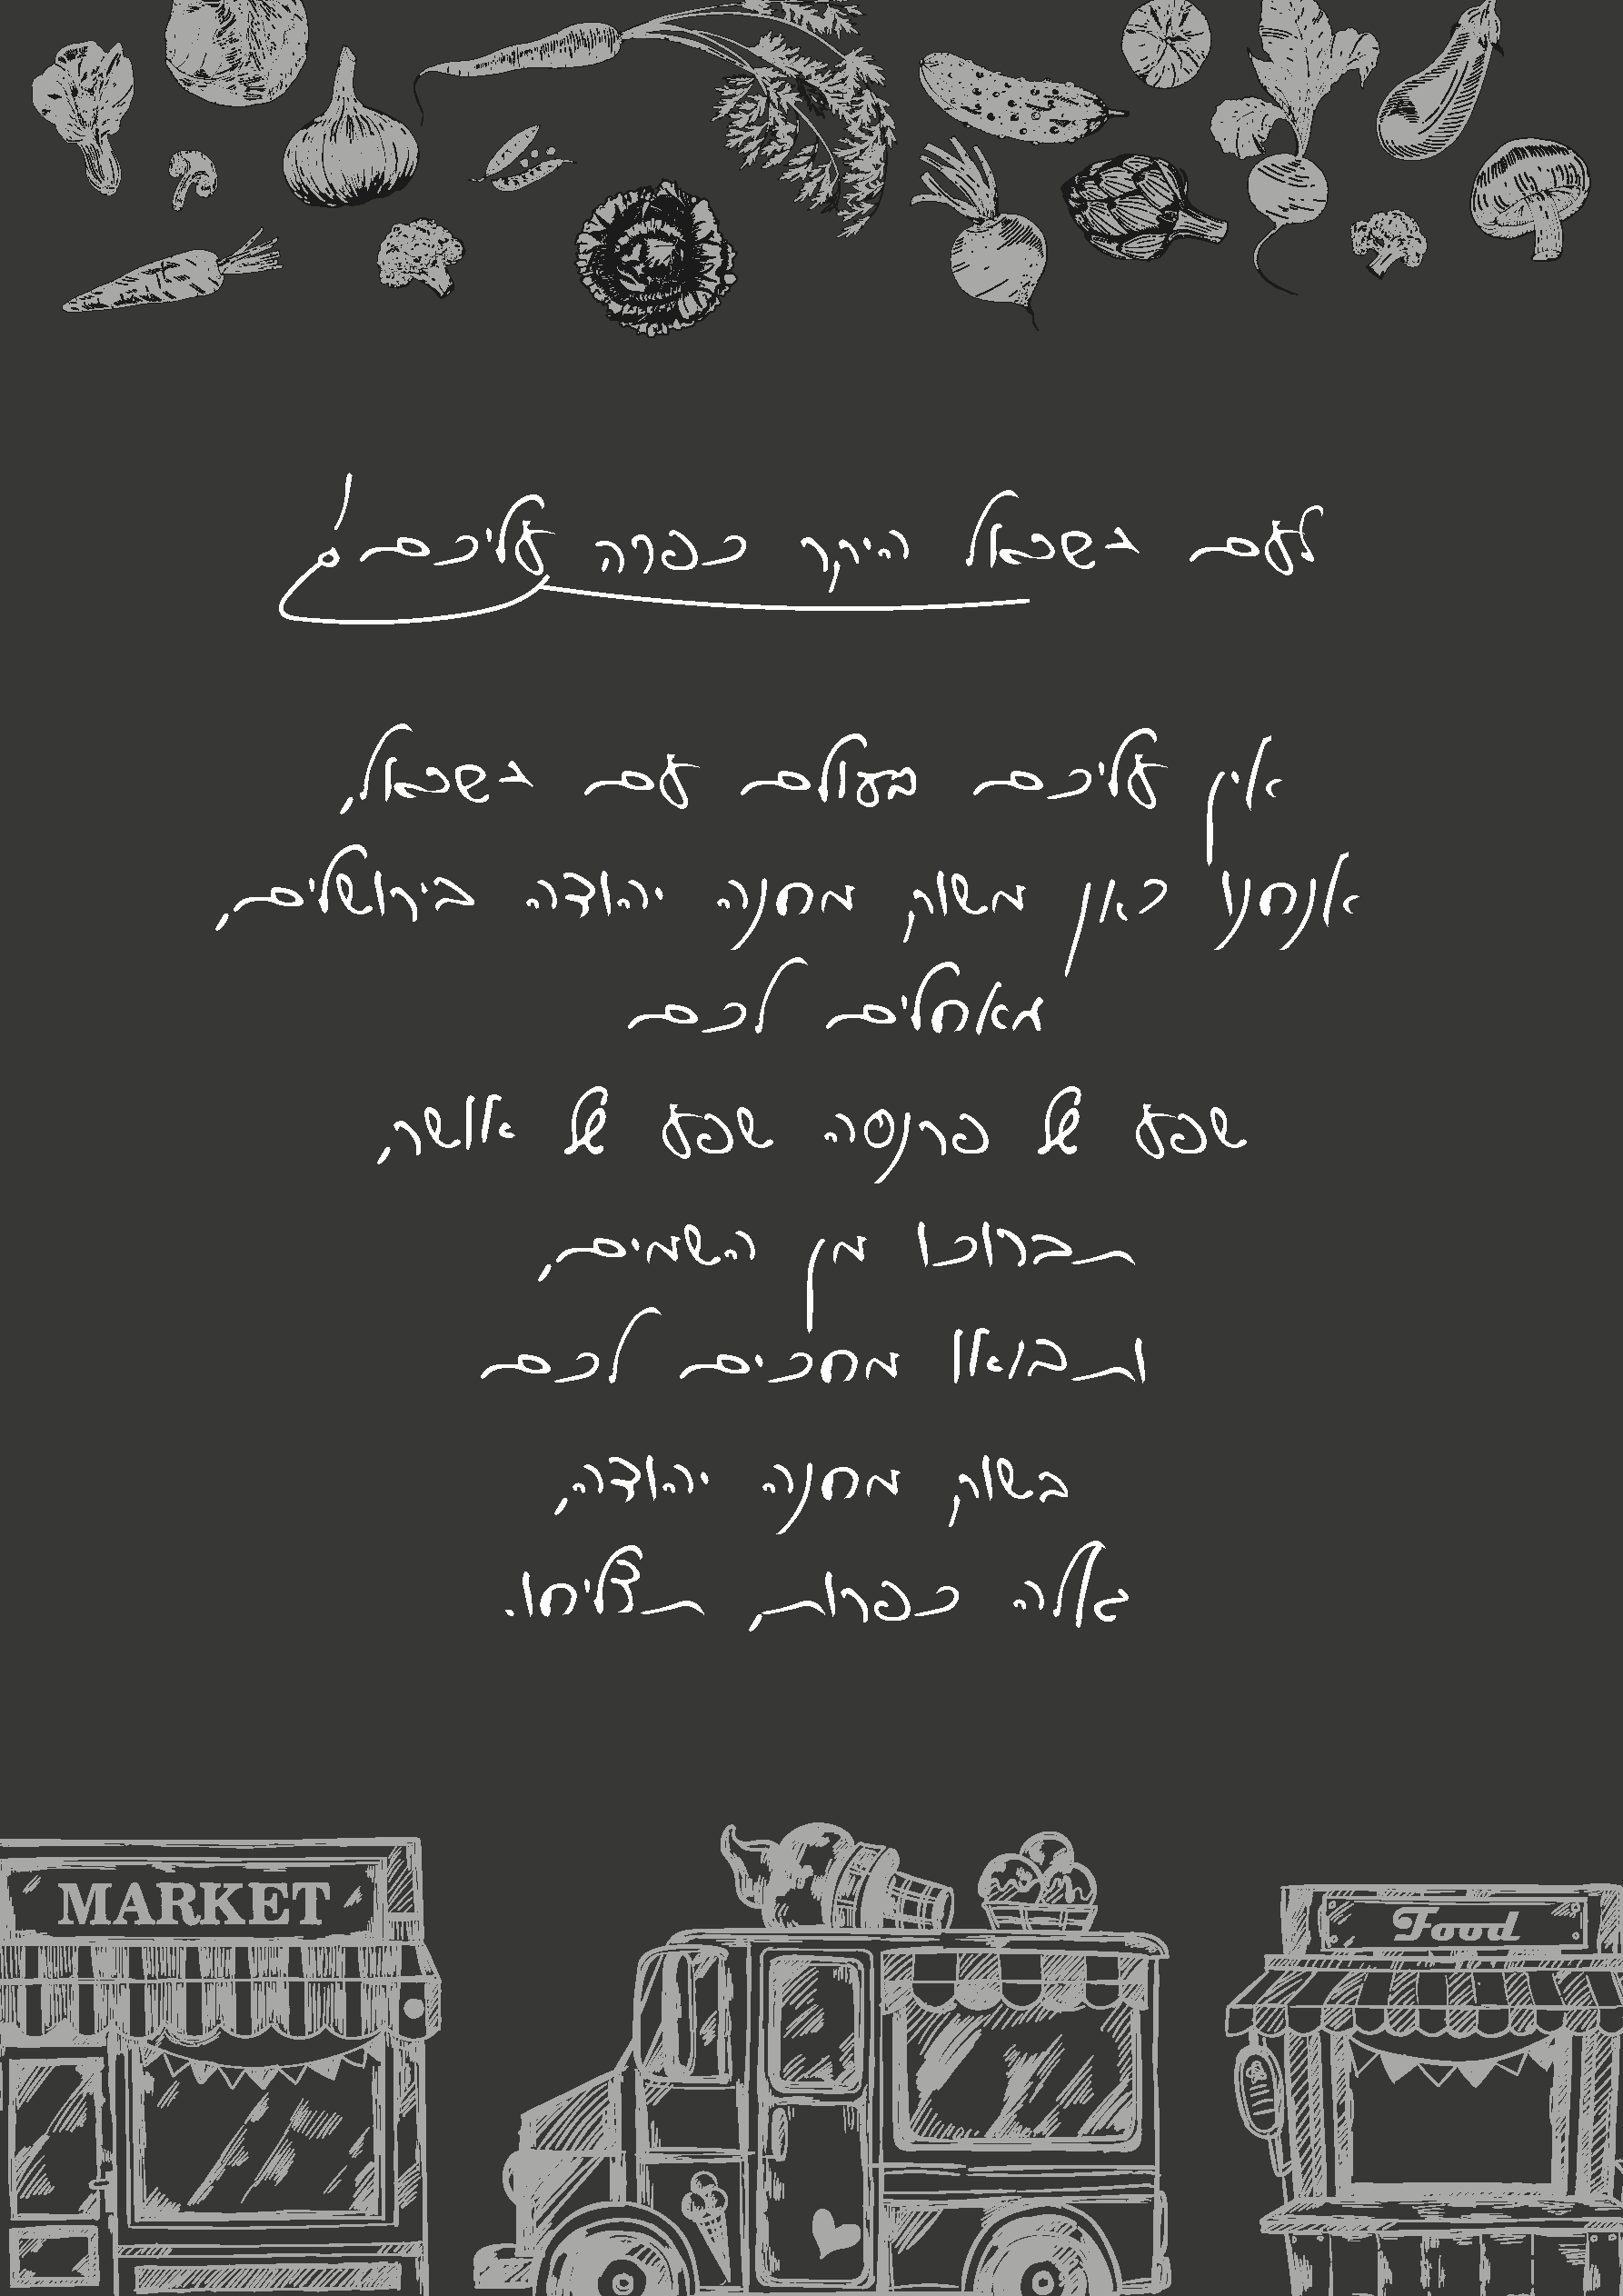 לעם ישראל היקר כפרה עליכם!
אין עליכם בעולם עם ישראל,
אנחנו כאן משוק מחנה יהודה בירושלים,
מאחלים לכם
שפע של פרנסה שפע של אושר,
תברוכו מן השמים,
ותבואו מחכים לכם
בשוק מחנה יהודה,
יאלה כפרות, תצליחו.
MARKET
Food